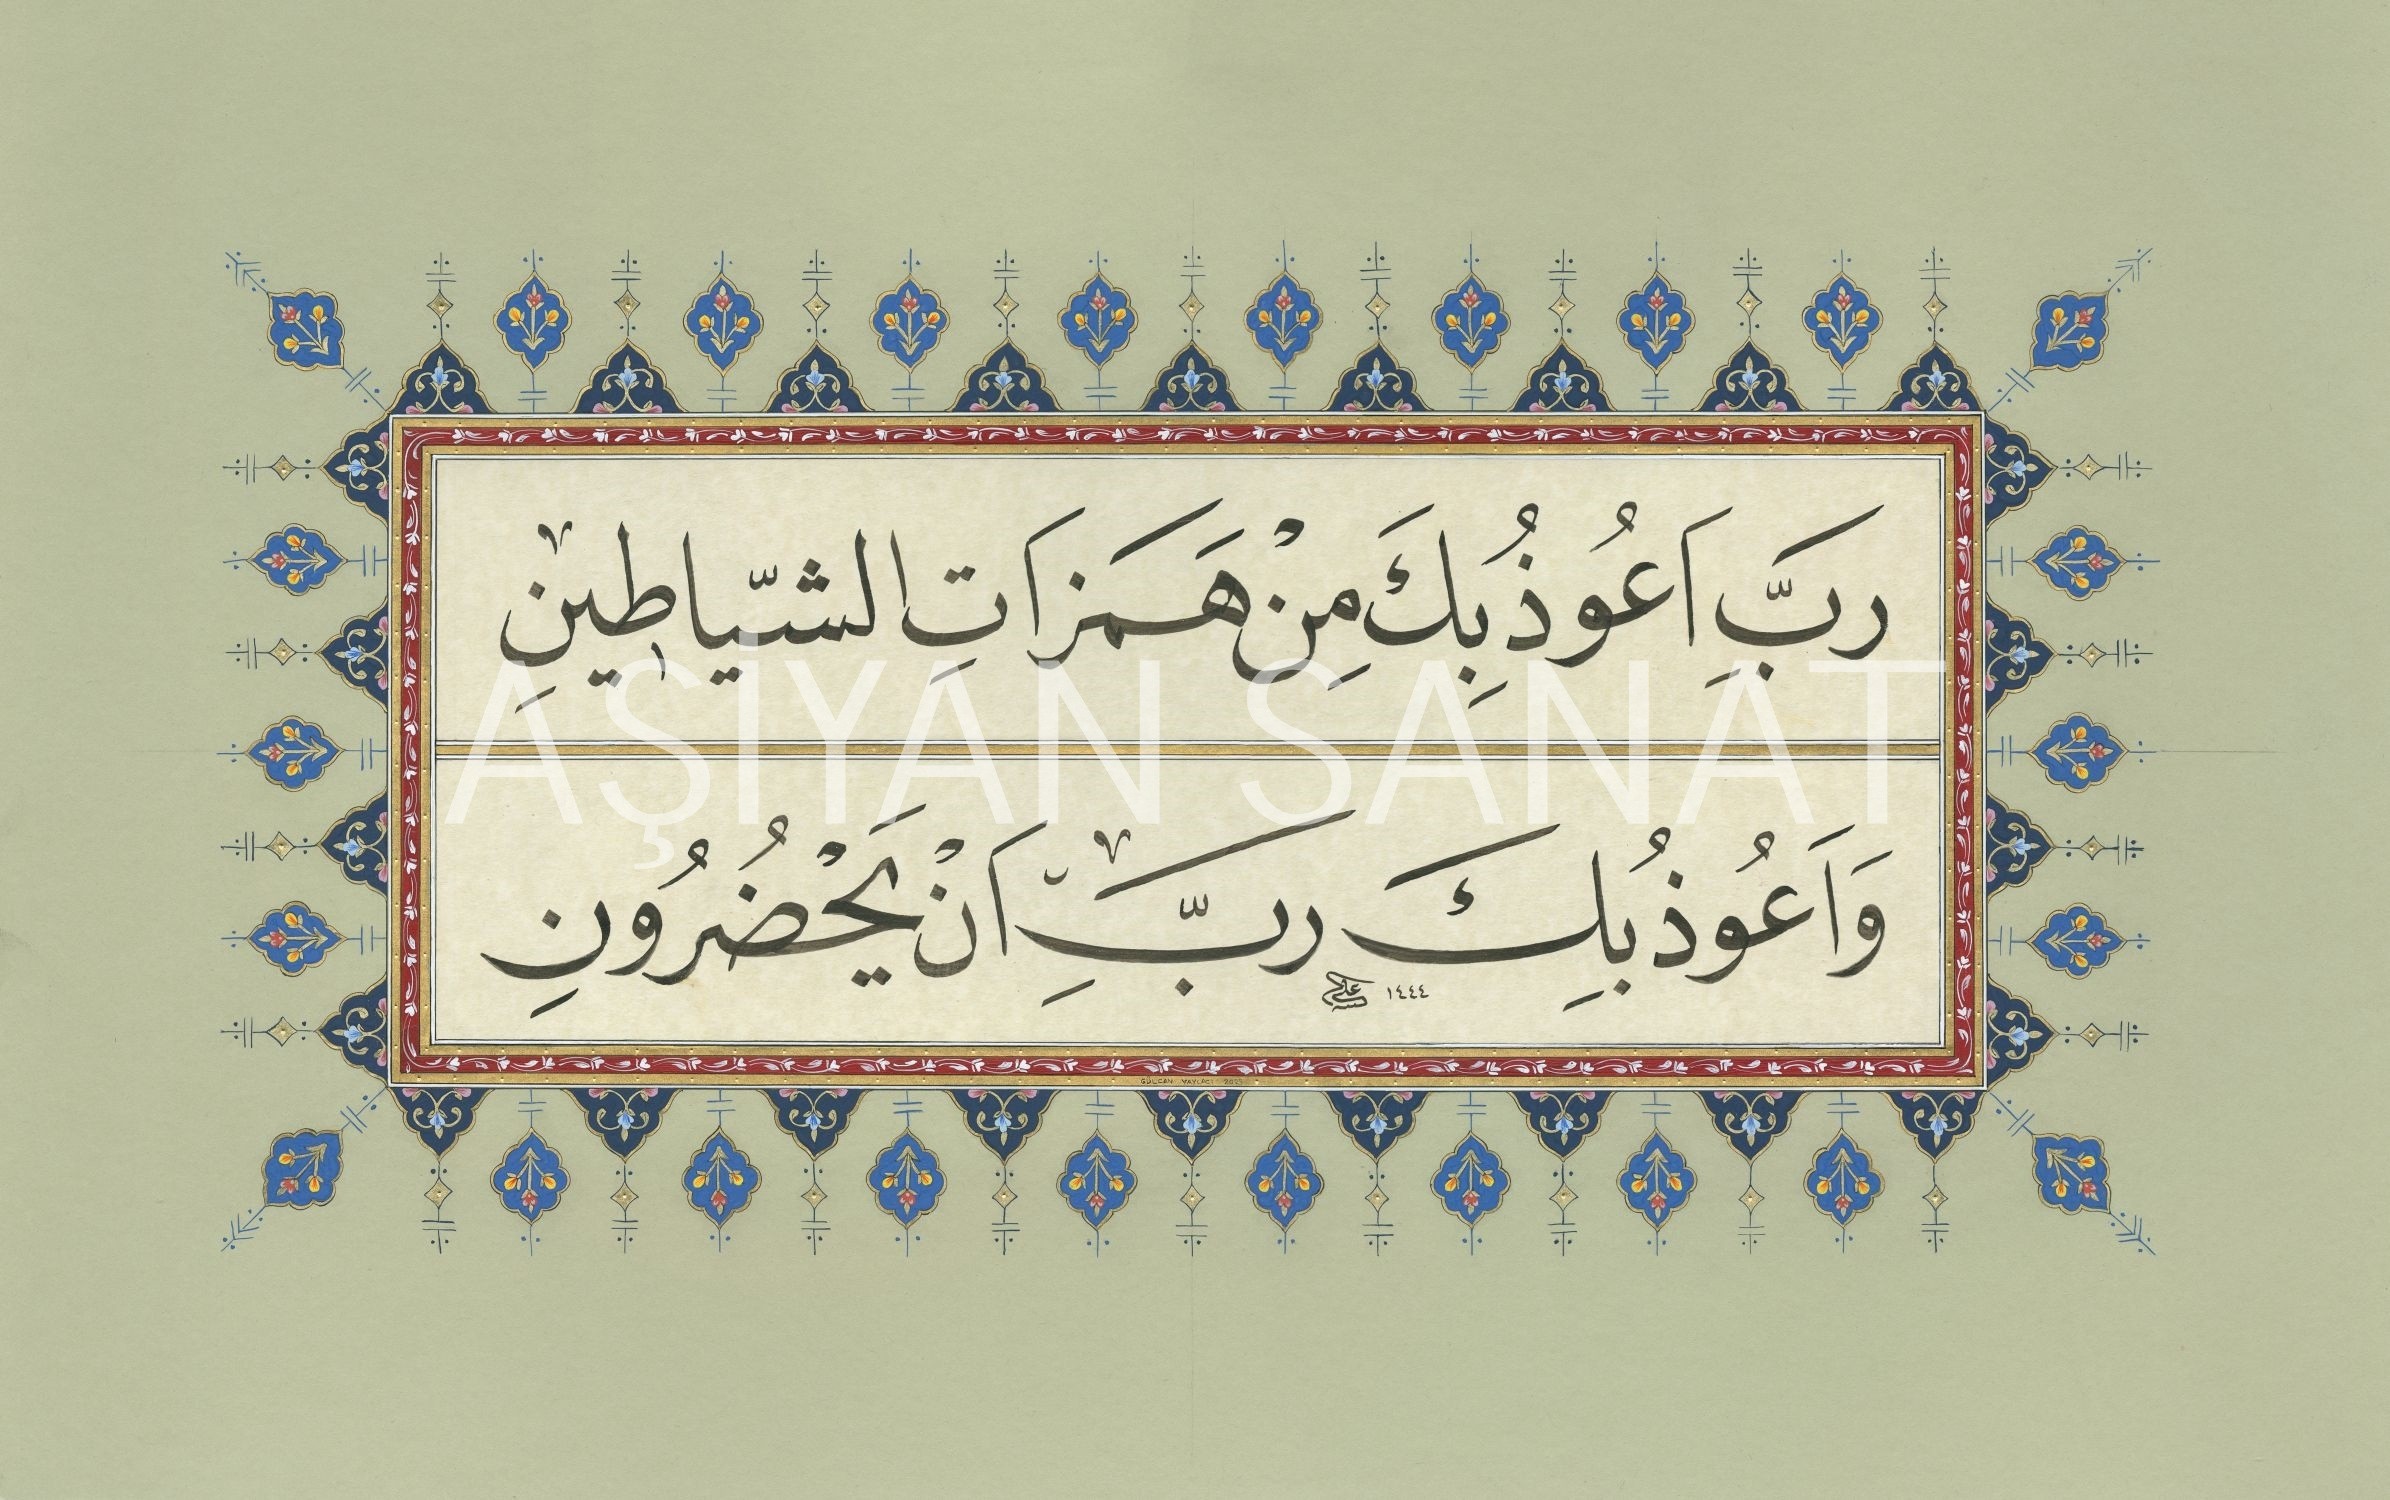 رَبِّ اَعُوذُ بِكَ مِنْ هَمَزَاتِ الشَّيَاطِينِ
وَاَعُوذُ بِكَ رَبِّ اَنْ يَحْضُرُونِ
١٤٤٤
AŞİYAN SANAT
GÜLCAN YAYLACI 2023